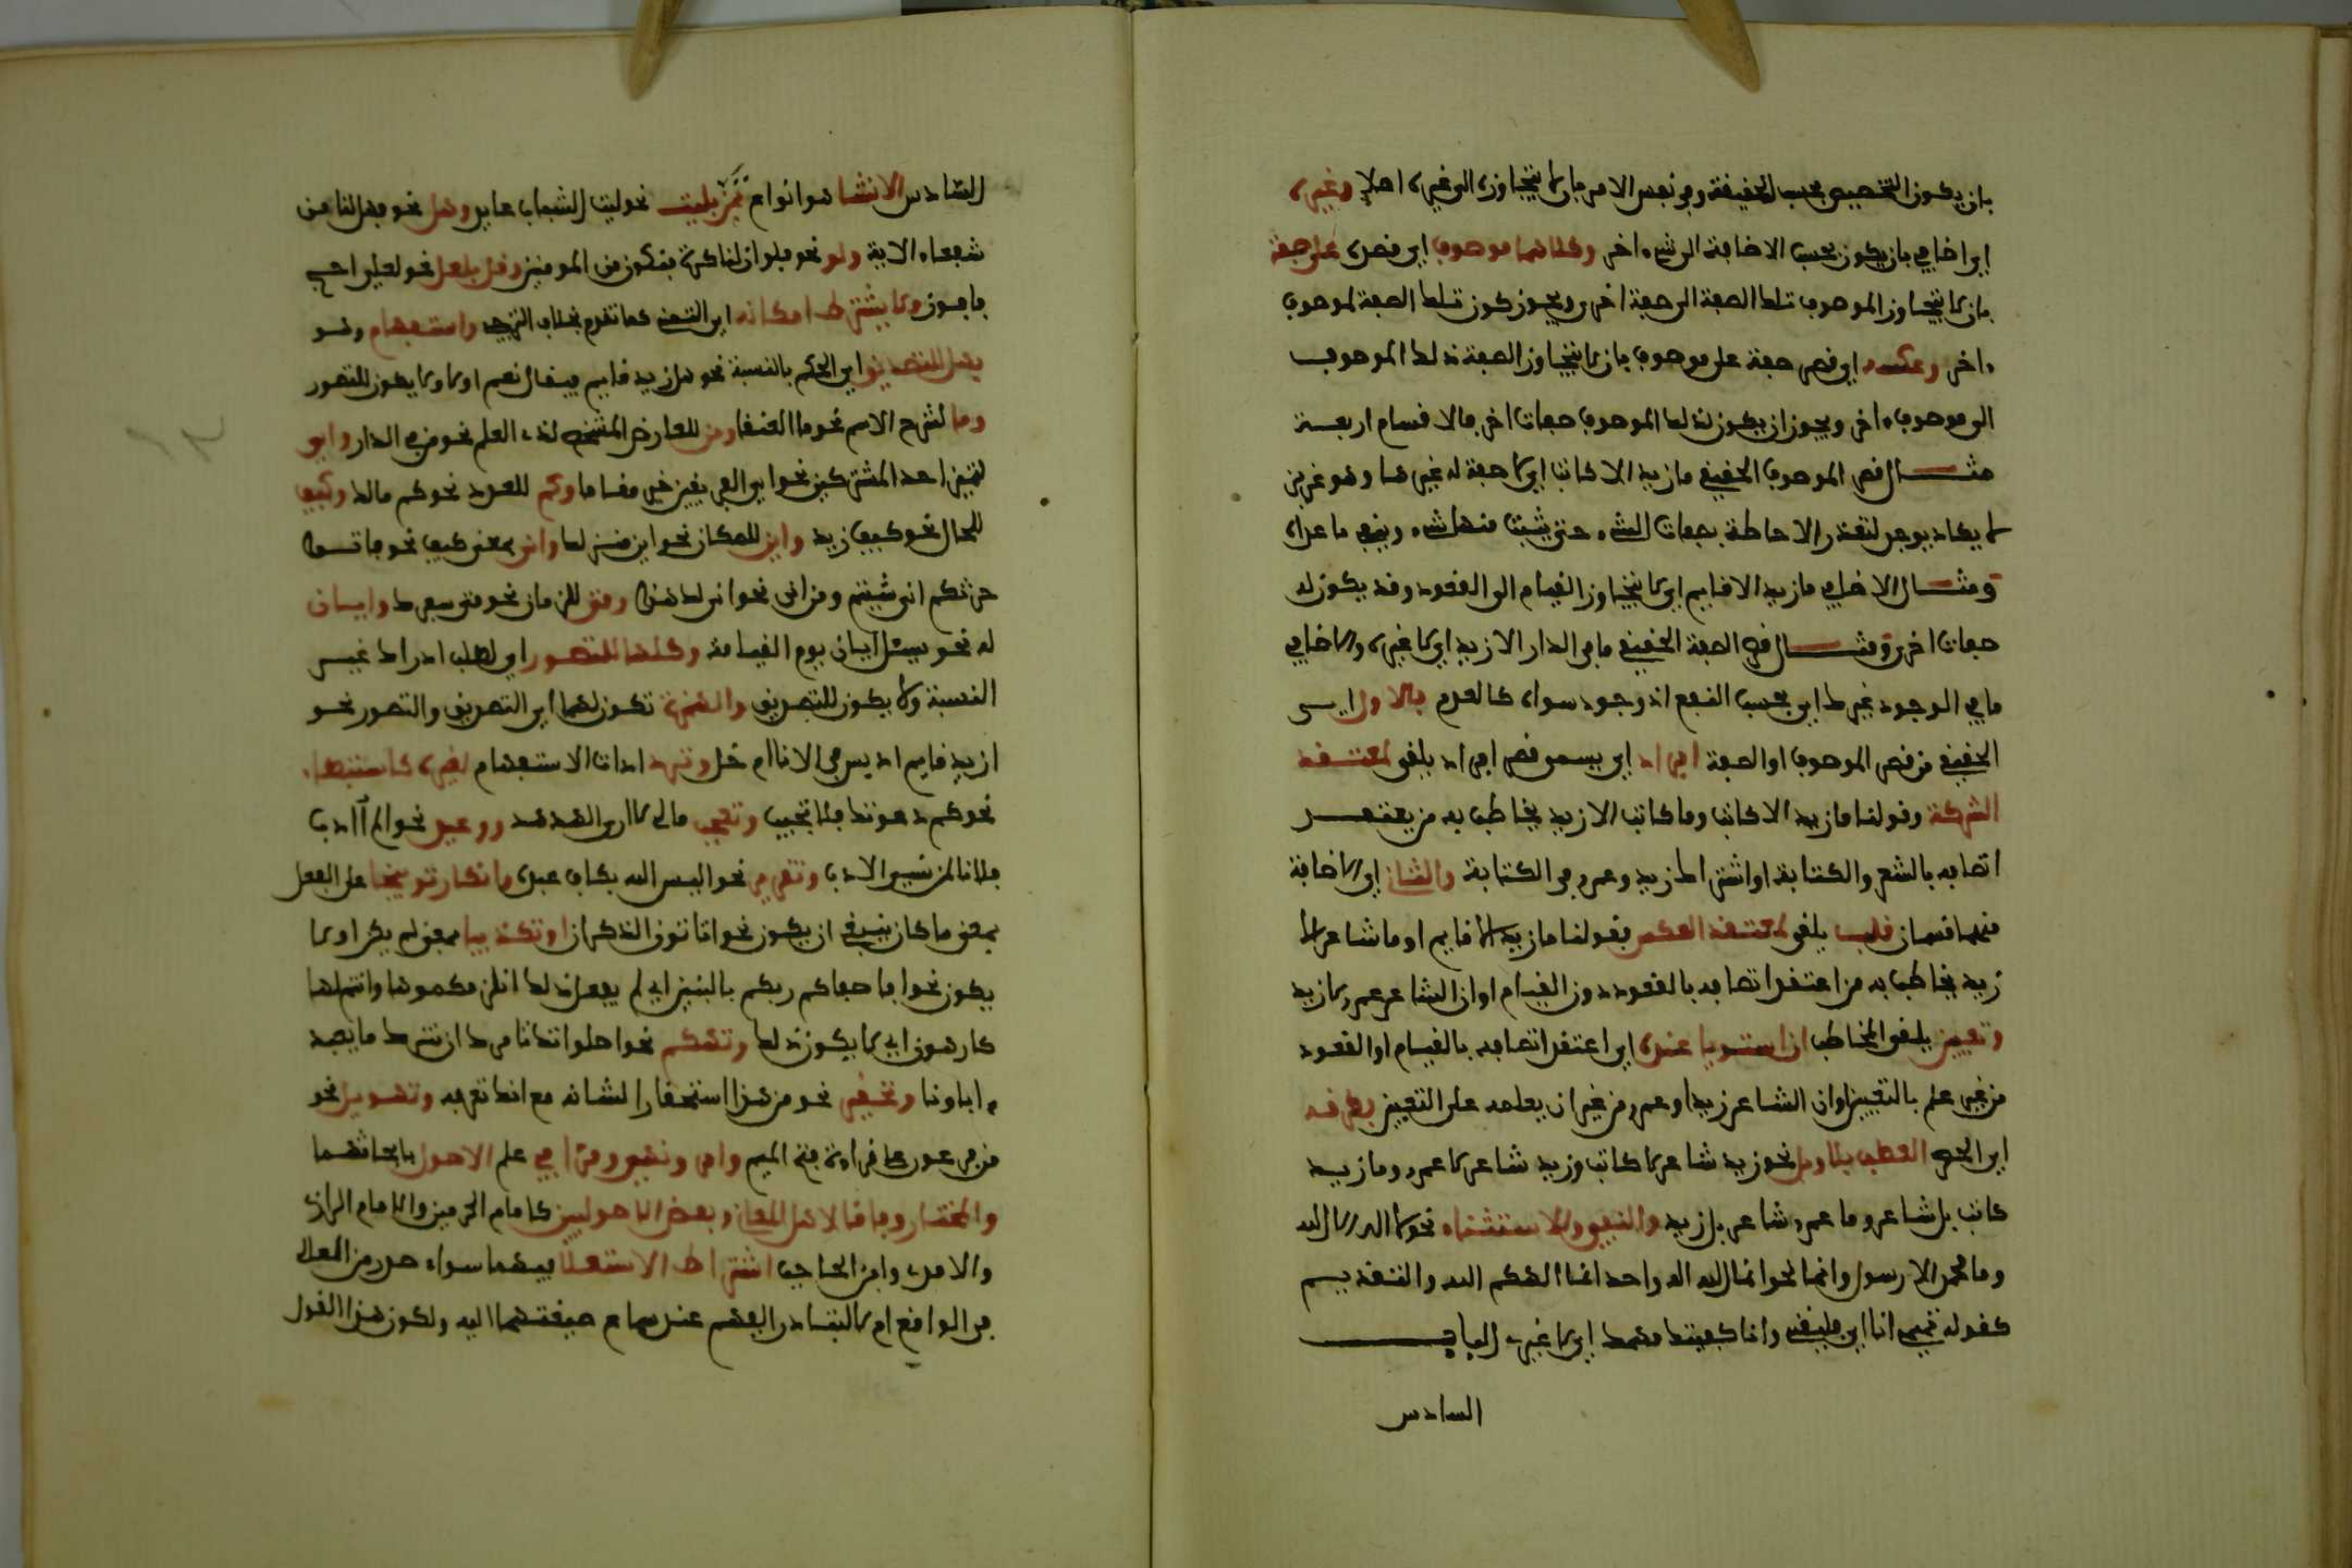 بان يكون التخصيص بحسب الحقيقة وفي نفس الامر بان لا يتجاوزه الى غيره اصلا وغيره
اي اضافي بان يكون بحسب الاضافة الى شيء اخر وكلاهما موصوف اي قصره على صفة
بان لا يتجاوز الموصوف تلك الصفة الى صفة اخرى ويجوز كون تلك الصفة لموصوف
ءاخر وعكسه اي قصر صفة على موصوف بان لا تتجاوز الصفة ذلك الموصوف
الى موصوف ءاخر ويجوز ان يكون لذلك الموصوف صفات اخر فالاقسام اربعة
مثال قصر الموصوف الحقيقي ما زيد الا كاتب اي لا صفة له غيرها وهو عزيز
لا يكاد يوجد لتعذر الاحاطة بصفات الشيء حتى يثبت منها شيء وينفى ما عداه
ومثال الاضافي ما زيد الا قايم اي لا يتجاوز القيام الى القعود وقد يكون له
صفات اخرى ومثال قصر الصفة الحقيقي ما في الدار الا زيد اي لا غيره والاضافي
ما في الوجود غيرك اي بحسب النفع اذ وجود سواك كالعدم فالاول اي
الحقيقي من قصر الموصوف او الصفة افراد اي يسمى قصر افراد يلقى لمعتقد
الشركة وقولنا ما زيد الا كاتب وما كاتب الا زيد يخاطب به من يعتقد
اتصافه بالشعر والكتابة او اشتراك زيد وعمرو في الكتابة والثاني اي الاضافة
منهما قسمان قلب يلقى لمعتقد العكس فقولنا ما زيد الا قايم او ما شاعر الا
زيد يخاطب به من اعتقد اتصافه بالقعود دون القيام او ان الشاعر عمرو لا زيد
وتعيين يلقى المخاطب ان استويا عنده اي اعتقد اتصافه بالقيام او القعود
من غير علم بالتعيين او ان الشاعر زيد او عمرو من غير ان يعلمه على التعيين وطرقه
اي الحصر العطف بلا وبل نحو زيد شاعر لا كاتب وزيد شاعر لا عمرو وما زيد
كاتب بل شاعر وما عمرو شاعر بل زيد والنفي والاستثناء نحو لا اله الا الله
وما محمد الا رسول وانما نحو انما الله اله واحد انما الهكم الله والتقديم
كقوله تميمي انا اي لا قيسي وانا كفيتك مهمك اي لا غيري الباب
السادس
السادس الانشا هو انواع تمن بليت نحو ليت الشباب عايد وهل نحو فهل لنا من
شفعاء الاية ولو نحو فلو ان لنا كرة فنكون من المومنين وقل بلعل نحو لعلي احج
فافوز ولا يشترط امكانه اي التمني كما تقدم بخلاف الترجي واستفهام وهو
بهل للتصديق اي الحكم بالنسبة نحو هل زيد قايم فيقال نعم او لا ولا يكون للتصور
وما لشرح الاسم نحو ما العنقا ومن للعارض المشخص لذي العلم نحو من في الدار واي
لتمييز احد المشتركين نحو اي الفريقين خير مقاما وكم للعدد نحو كم مالك وكيف
للحال نحو كيف زيد واين للمكان نحو اين منزلك وانى بمعنى كيف نحو فاتوا
حرثكم انى شيتم ومن اين نحو انى لك هذا ومتى للزمان نحو متى سفرك وايان
له نحو يسئل ايان يوم القيامة وكلها للتصور اي لطلب ادراك غير
النسبة ولا يكون للتصديق والهمزة تكون لهما اي التصديق والتصور نحو
ازيد قايم ادبس في الانا ام خل وترد ادات الاستفهام لغيره كاستبطاء
نحو كم دعوتك فلا تجيب وتعجب مالي لا ارى الهدهد ووعيد نحو الم اادب
فلانا لمن يسيء الادب وتقرير نحو اليس الله بكاف عبده وانكار توبيخا على الفعل
بمعنى ما كان ينبغي ان يكون نحو اتاتون الذكران او تكذيبا بمعنى لم يكن او لا
يكون نحو افاصفاكم ربكم بالبنين اي لم يفعل ذلك انلزمكموها وانتم لها
كارهون اي لا يكون ذلك وتهكم نحو اصلواتك تامرك ان نترك ما يعبد
ءاباونا وتحقير نحو من هذا استحقارا لشانه مع انك تعرفه وتهويل نحو
من فرعون على قراءة فتح الميم وامر ونهي ومرا في علم الاصول بابحاثهما
والمختار وفاقا لاهل المعاني وبعض الاصوليين كامام الحرمين والامام الرازي
والامدي وابن الحاجب اشتراط الاستعلا فيهما سواء صدر من العلا
في الواقع ام لا لتبادر الفهم عند سماع صيغتهما اليه ولكون هذا القول